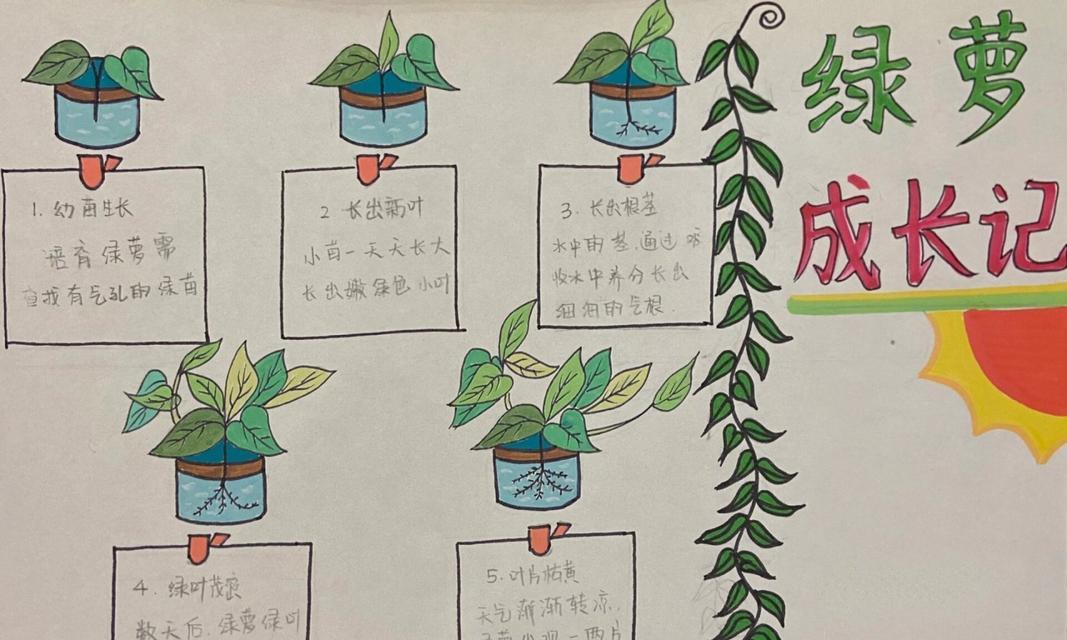 绿萝
成长记
1. 幼苗生长
培育绿萝需
查找有气孔的绿苗
2 长出新叶
小苗一天天长大
长出嫩绿色小叶
3. 长出根茎
水中的茎通过吸
收水中养分长出
细细的气根.
4. 绿叶茂盛
数天后.绿萝绿叶
5. 叶片枯黄
天气渐渐转凉,
一两片